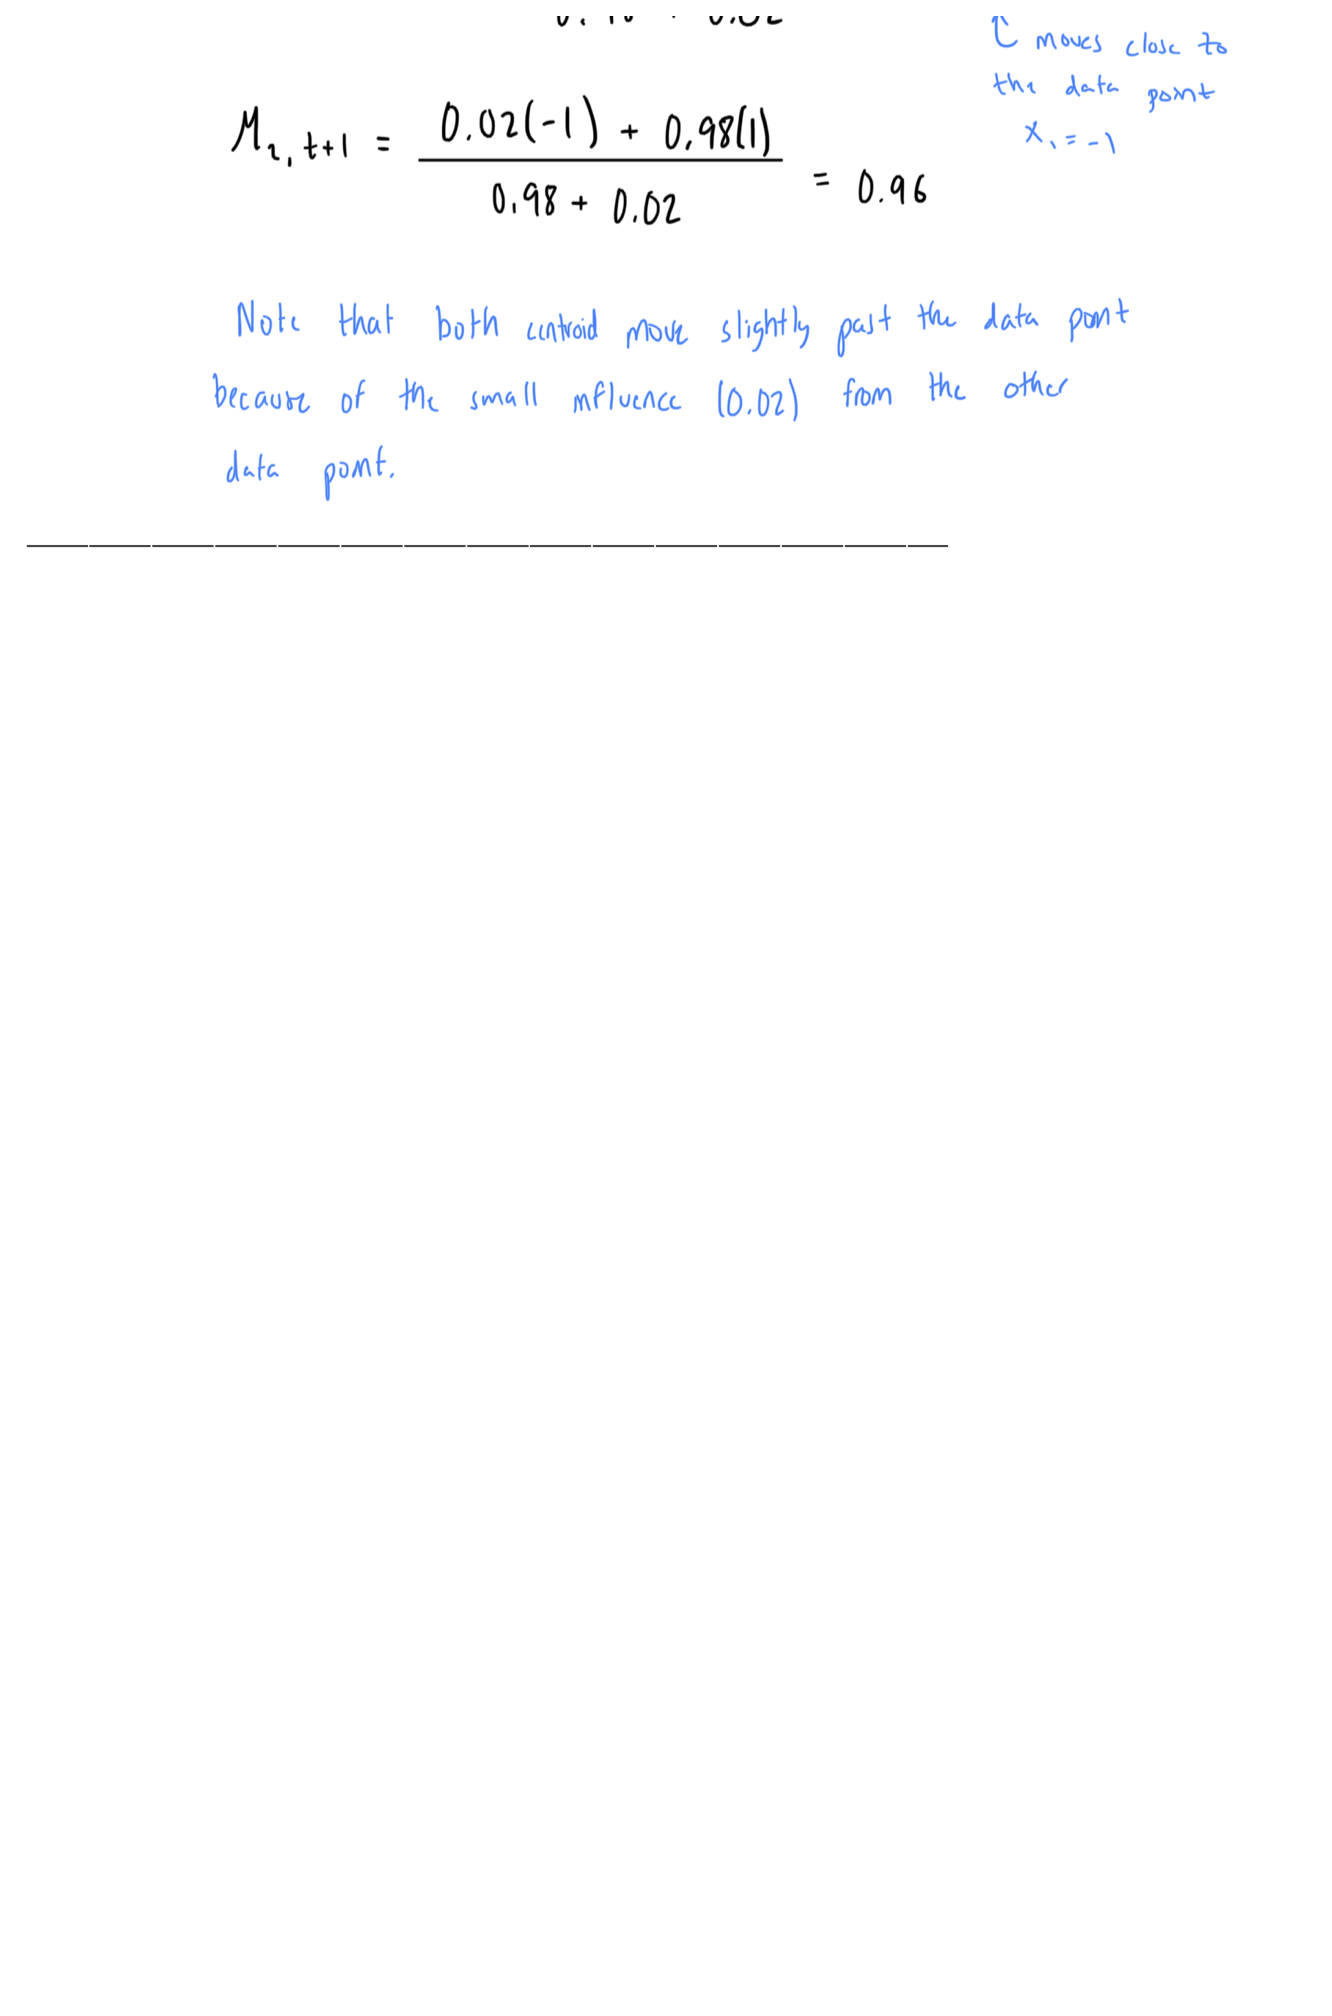 ↑ moves close to
the data point
x₁ = -1
M₂,t+1 = 0.02(-1) + 0.98(1)
0.98 + 0.02
= 0.96
Note that both centroid move slightly past the data point
because of the small influence (0.02) from the other
data point.